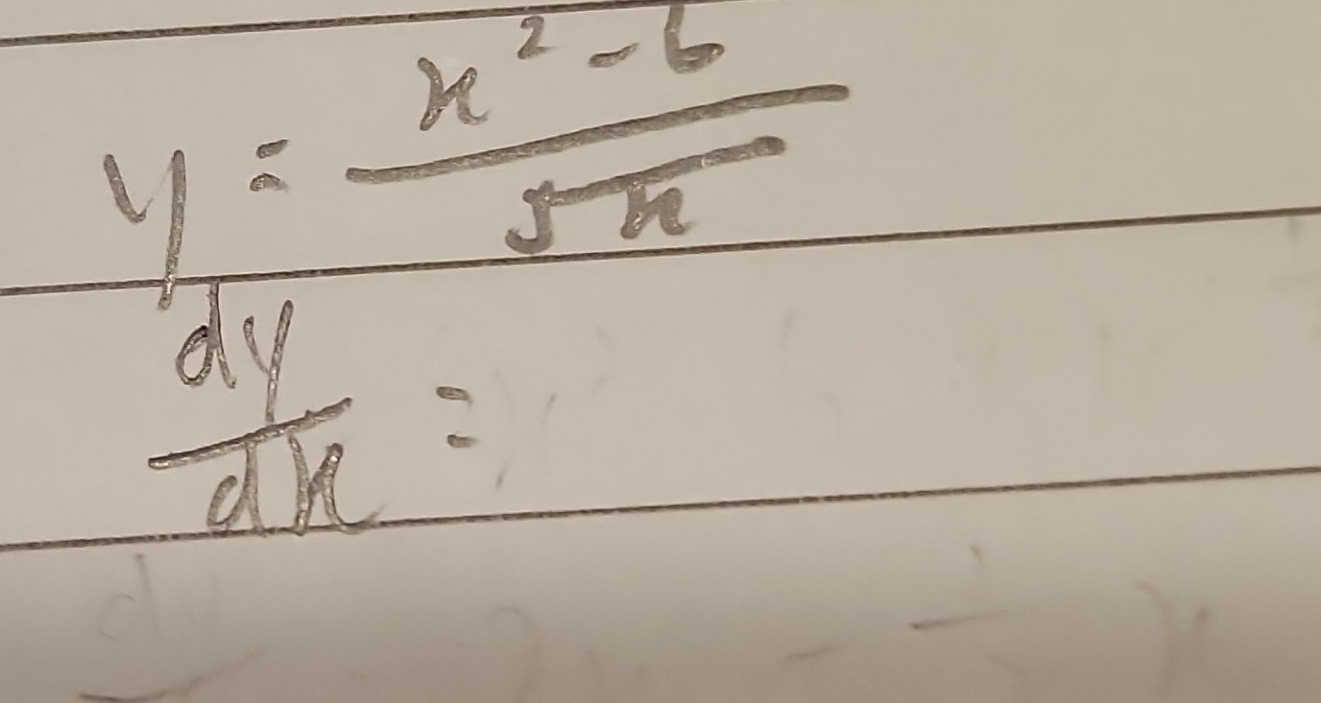 y = (x² - 6)/√x
dy/dx =